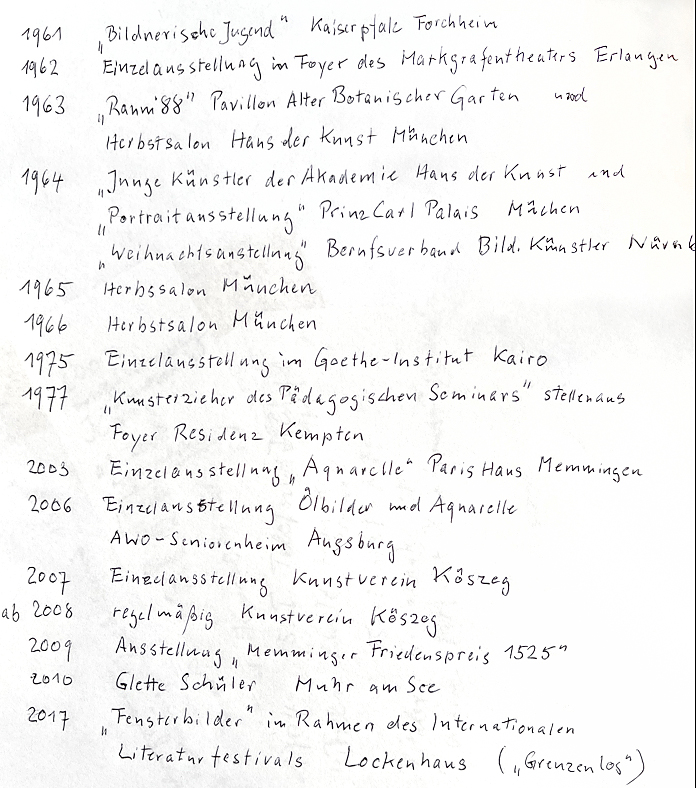 1961 „Bildnerische Jugend“ Kaiserpfalz Forchheim
1962 Einzelausstellung im Foyer des Markgrafentheaters Erlangen
1963 „Raum '88“ Pavillon Alter Botanischer Garten und
Herbstsalon Haus der Kunst München
1964 „Junge Künstler der Akademie Haus der Kunst und
„Portraitausstellung“ Prinz Carl Palais Müchen
„Weihnachtsanstellung“ Berufsverband Bild. Künstler Nürnb
1965 Herbssalon München
1966 Herbstsalon München
1975 Einzelausstellung im Goethe-Institut Kairo
1977 „Kunsterzieher des Pädagogischen Seminars“ stellenaus
Foyer Residenz Kempten
2003 Einzelausstellung „Aquarelle“ Paris Haus Memmingen
2006 Einzelausstellung Ölbilder und Aquarelle
AWO-Seniorenheim Augsburg
2007 Einzelausstellung Kunstverein Kőszeg
ab 2008 regelmäßig Kunstverein Kőszeg
2009 Ausstellung „Memminger Friedenspreis 1525“
2010 Glette Schüler Muhr am See
2017 „Fensterbilder“ im Rahmen des Internationalen
Literaturfestivals Lockenhaus („Grenzenlos“)